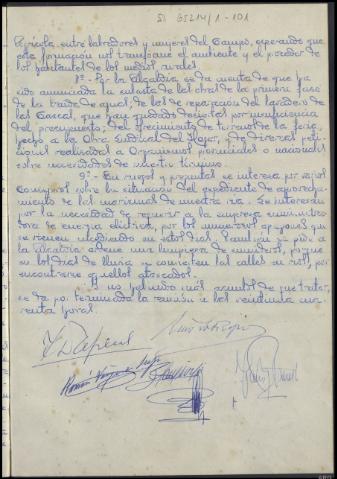 SI GIZ14/1-101
Agrícola, entre labradores y mujeres del Campo, esperando que
esta formación nos transforme el ambiente y el proceder de
los habitantes de los medios rurales.
8º- Por la Alcaldía se da cuenta de que ha
sido anunciada la subasta de las obras de la primera fase
de la traida de aguas, de las de reparación del lavadero de
las Carcal, que han quedado desiertas por insuficiencia
del presupuesto; del ofrecimiento de terrenos de la feria,
hecho a la Obra Sindical del Hogar, y de diversas peti-
ciones realizadas a Organismos provinciales o nacionales
sobre necesidades de nuestro término.
9º- En ruegos y preguntas se interesa por varios
Concejales sobre la situación del expediente de aprovecha-
miento de las marismas de nuestra ría. Se interesan
por la necesidad de requerir a la empresa suministra-
dora de energía eléctrica, por los numerosos apagones que
se vienen registrando en estos días. También se pide a
la Alcaldía ordene una limpieza de sumideros, porque
en los días de lluvia se convierten las calles en ríos, por
encontrarse aquellos atascados.
Y no habiendo más asuntos de que tratar,
se da por terminada la reunión a las veintiuna cua-
renta horas.